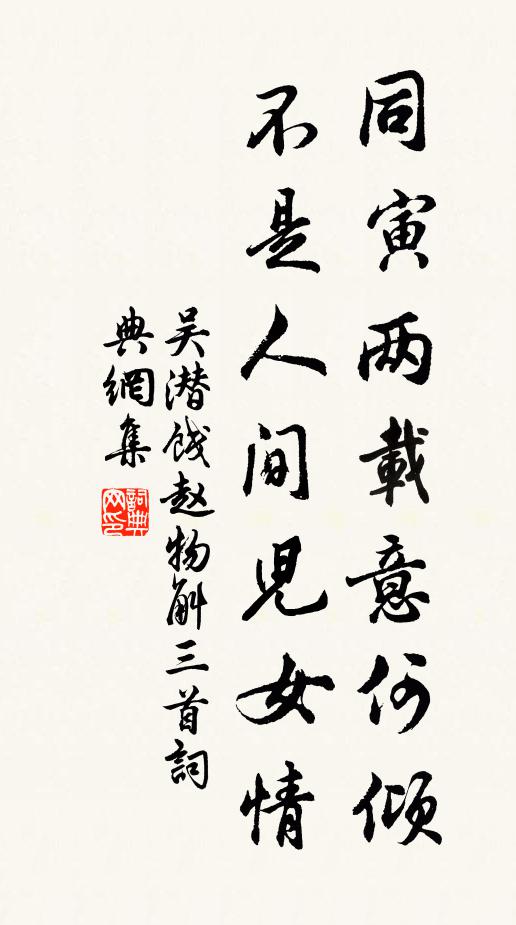 同寅两載意何倾
不是人间児女情
吴潜饯赵物斛三首詞
典網集
詞典网印